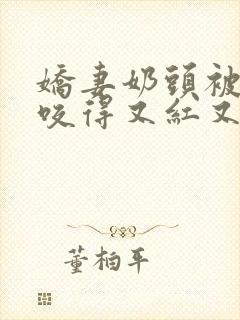 嬌妻奶頭被
咬得又紅又
董柏平